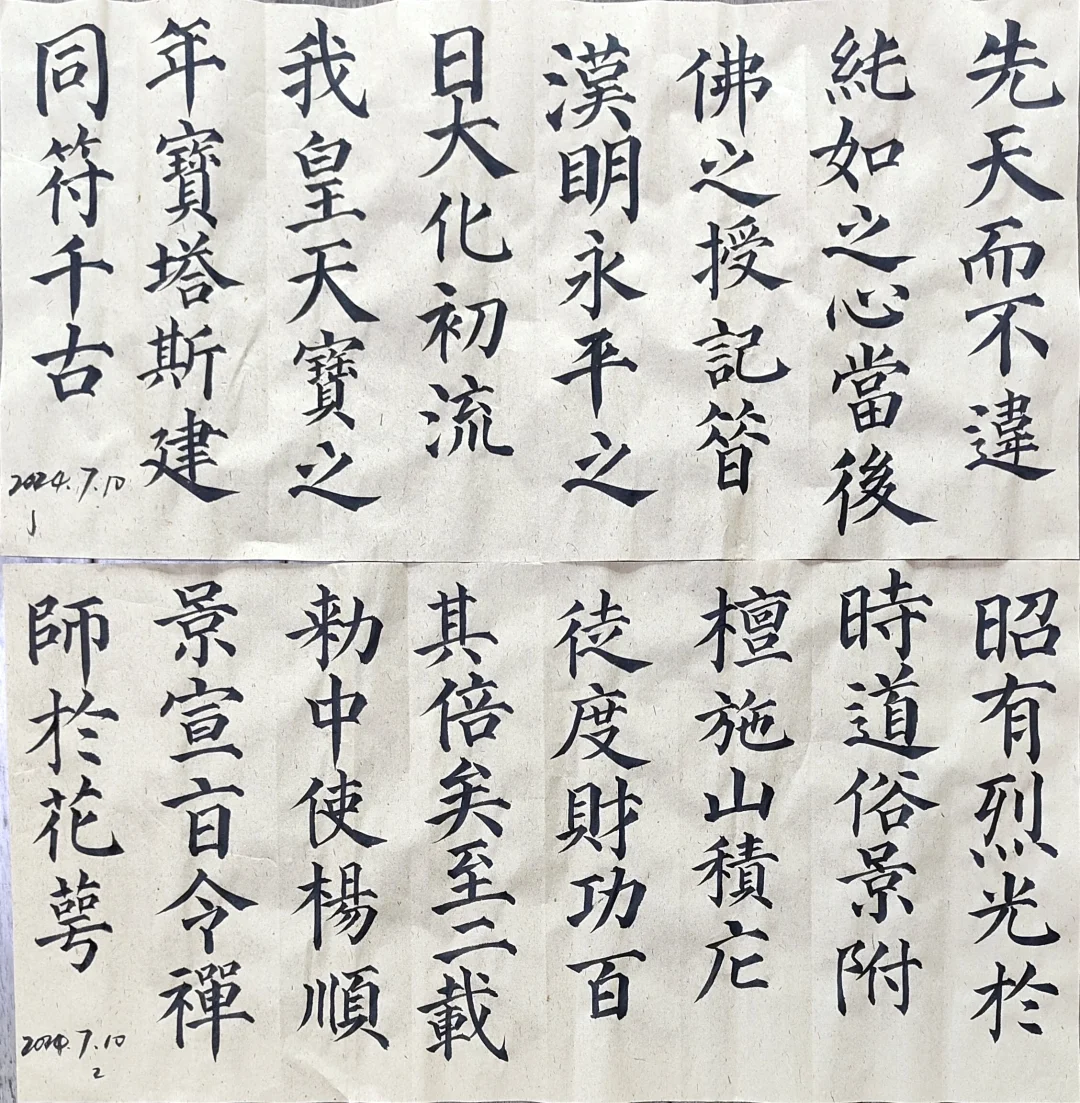 先天而不違
純如之心當後
佛之授記昔
漢明永平之
日大化初流
我皇天寶之
年寶塔斯建
同符千古
2024.7.10
1
昭有烈光於
時道俗景附
檀施山積庀
徒度財功百
其倍矣至二載
勅中使楊順
景宣旨令禪
師於花萼
2024.7.10
2